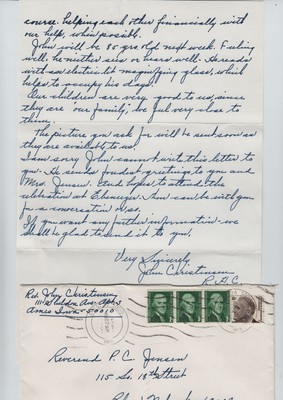 course. helping each other financially with
our help, when possible.
John will be 85 yrs old next week. Feeling
well, he neither sees or hears well. He reads
with an electric lit magnifying glass, which
helps to occupy his days.
Our children are very good to us, since
they are our family, we feel very close to
them.
The picture you ask for will be sent soon as
they are available to us.
I am sorry John cannot write this letter to
you. He sends fondest greetings to you and
Mrs. Jensen. And hopes to attend the
celebration at Ebenezer. Then can be with you
for a conversation also.
If you want any further information we
shall be glad to send it to you.
Very Sincerely,
John Christensen
R.A.C.
Rev. John Christensen
Ave. Apt. 3
Ames Iowa - 50010
Reverend P. C. Jensen
115 So. 18th Street
Blair, Nebr.